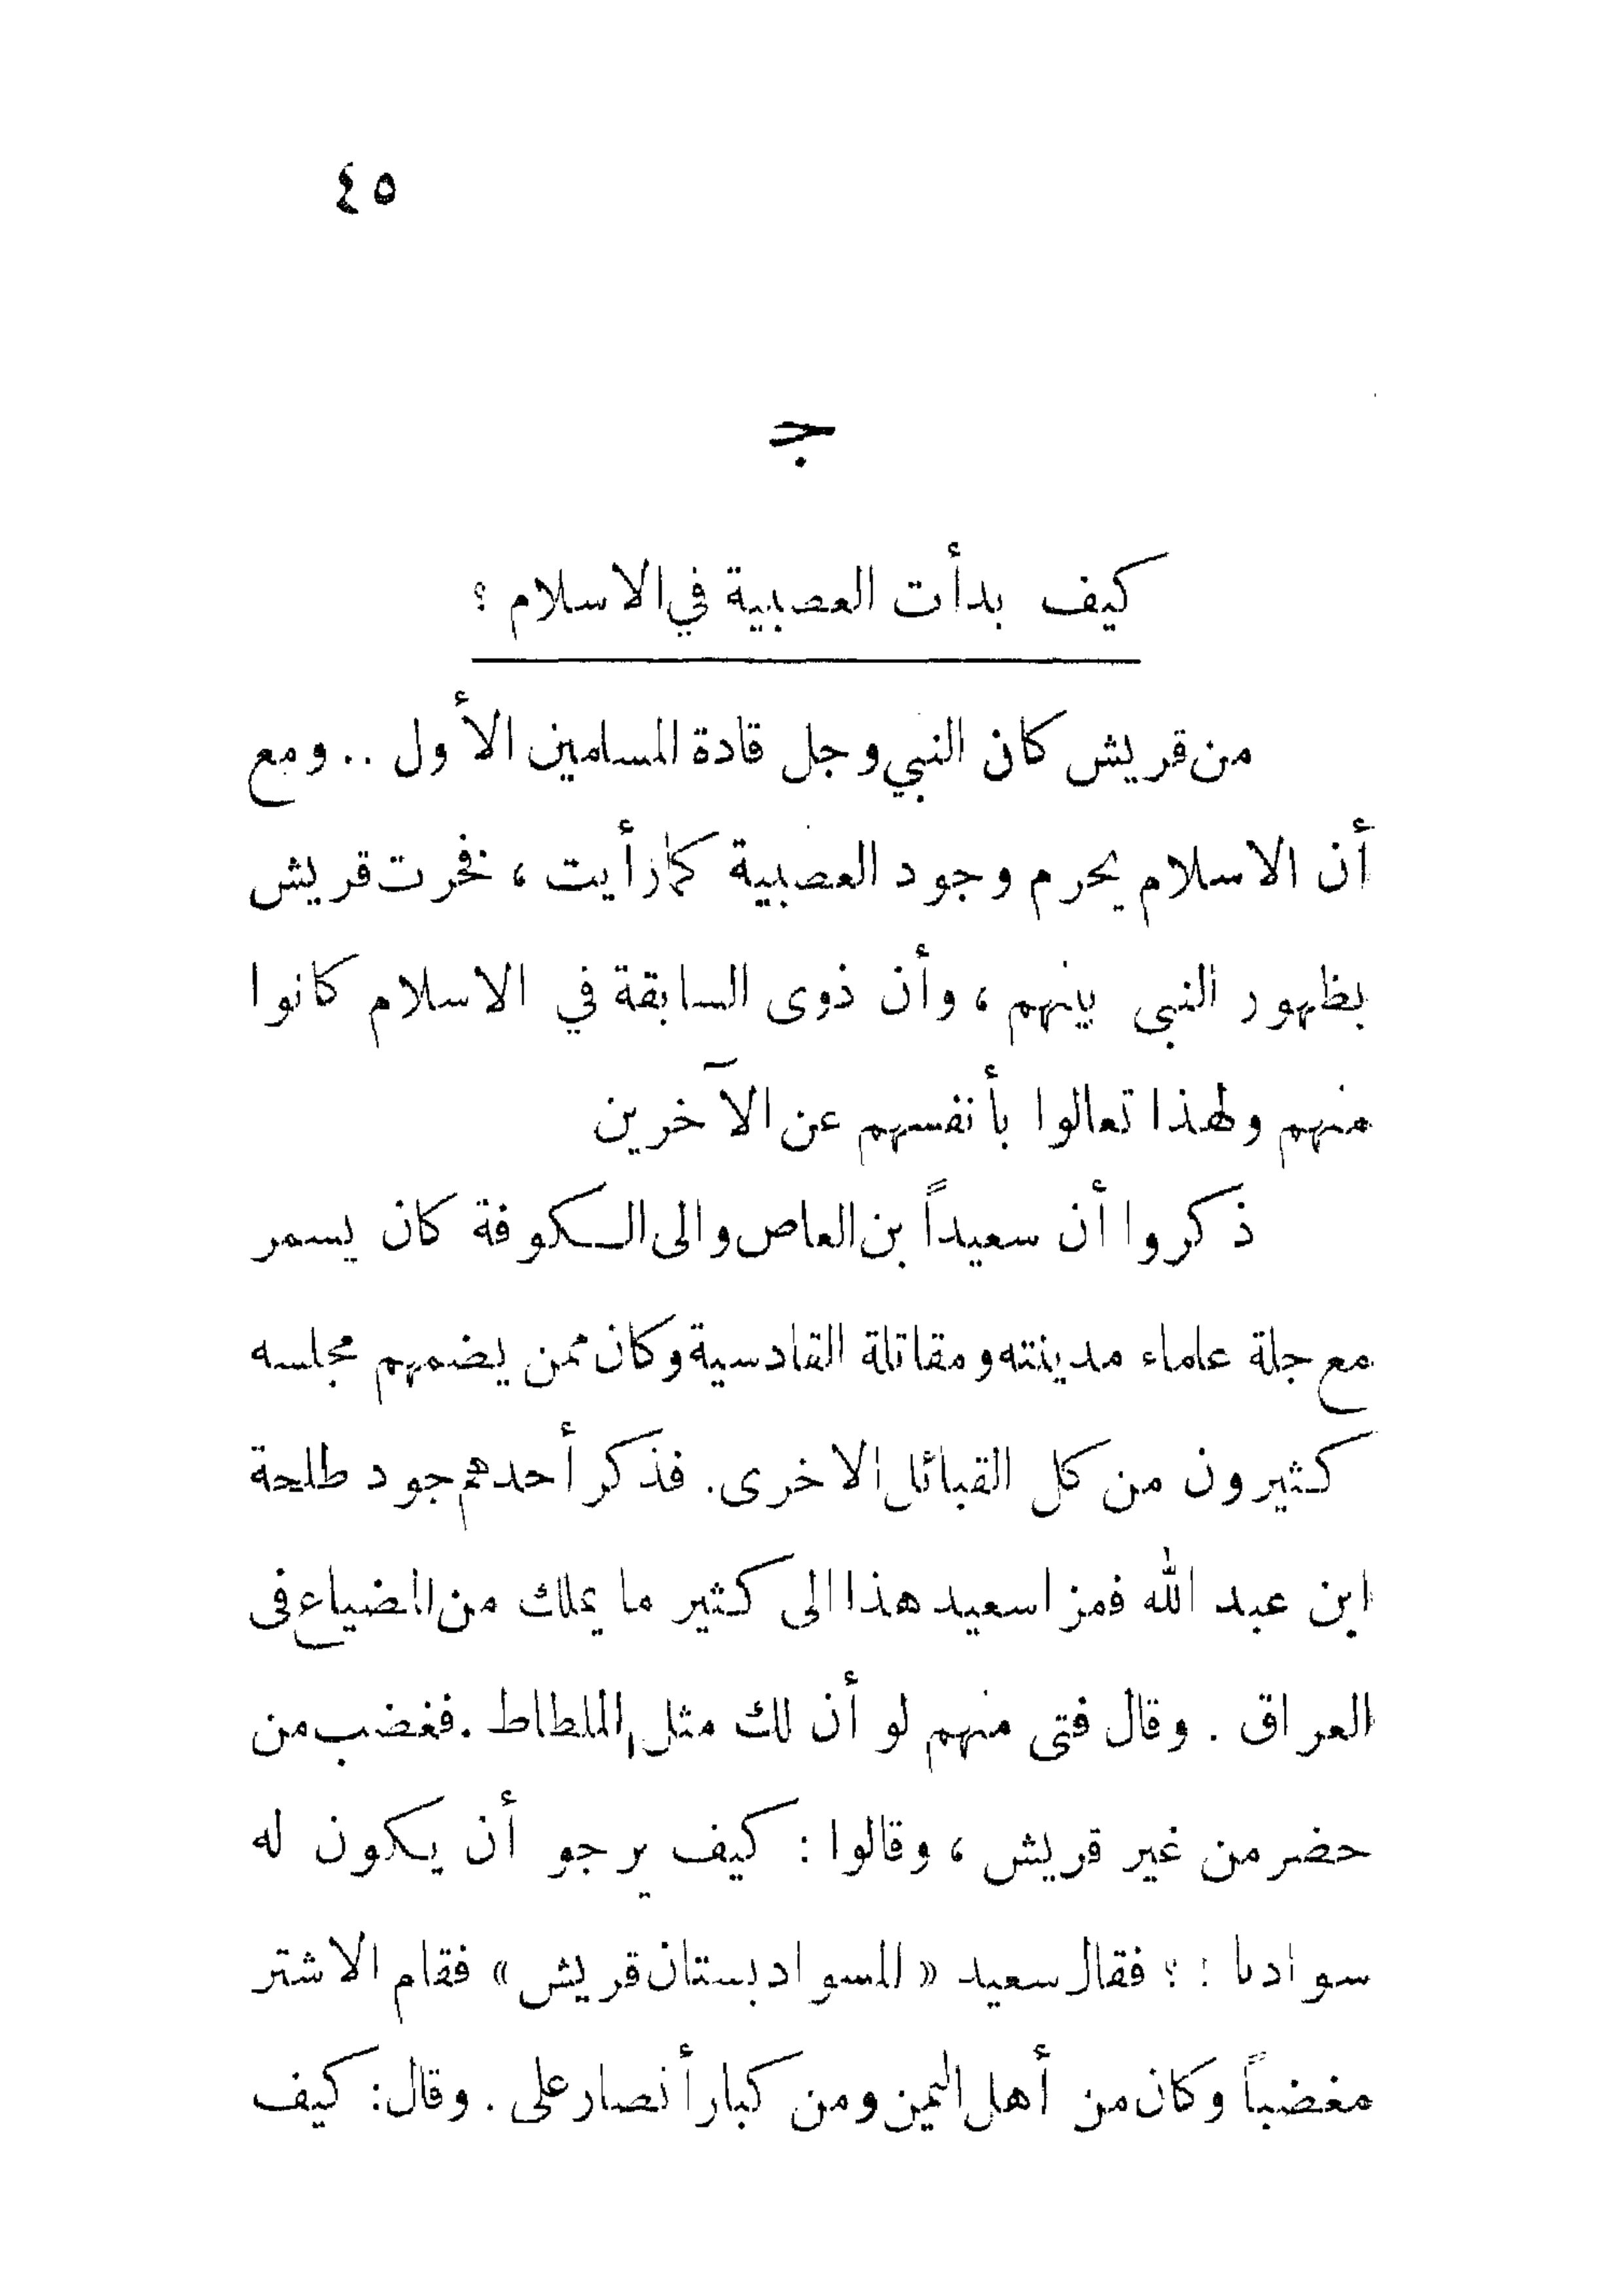 ٤٥
ج
كيف بدأت العصبية في الاسلام ؟
من قريش كان النبي وجل قادة المسلمين الأول .. ومع
أن الاسلام يحرم وجود العصبية كما رأيت ، فخرت قريش
بظهور النبي بينهم ، وأن ذوى السابقة في الاسلام كانوا
منهم ولهذا تعالوا بأنفسهم عن الآخرين
ذكروا أن سعيداً بن العاص والى الكوفة كان يسمر
مع جلة علماء مدينته ومقاتلة القادسية وكان ممن يضمهم مجلسه
كثيرون من كل القبائل الاخرى. فذكر أحدهم جود طلحة
ابن عبد الله فمزا سعيد هذا الى كثير ما يملك من الضياع فى
العراق . وقال فتى منهم لو أن لك مثل الملطاط . فغضب من
حضر من غير قريش ، وقالوا : كيف يرجو أن يكون له
سوادنا ! ؟ فقال سعيد « السواد بستان قريش » فقام الاشتر
مغضباً وكان من أهل اليمن ومن كبار أنصار على . وقال: كيف